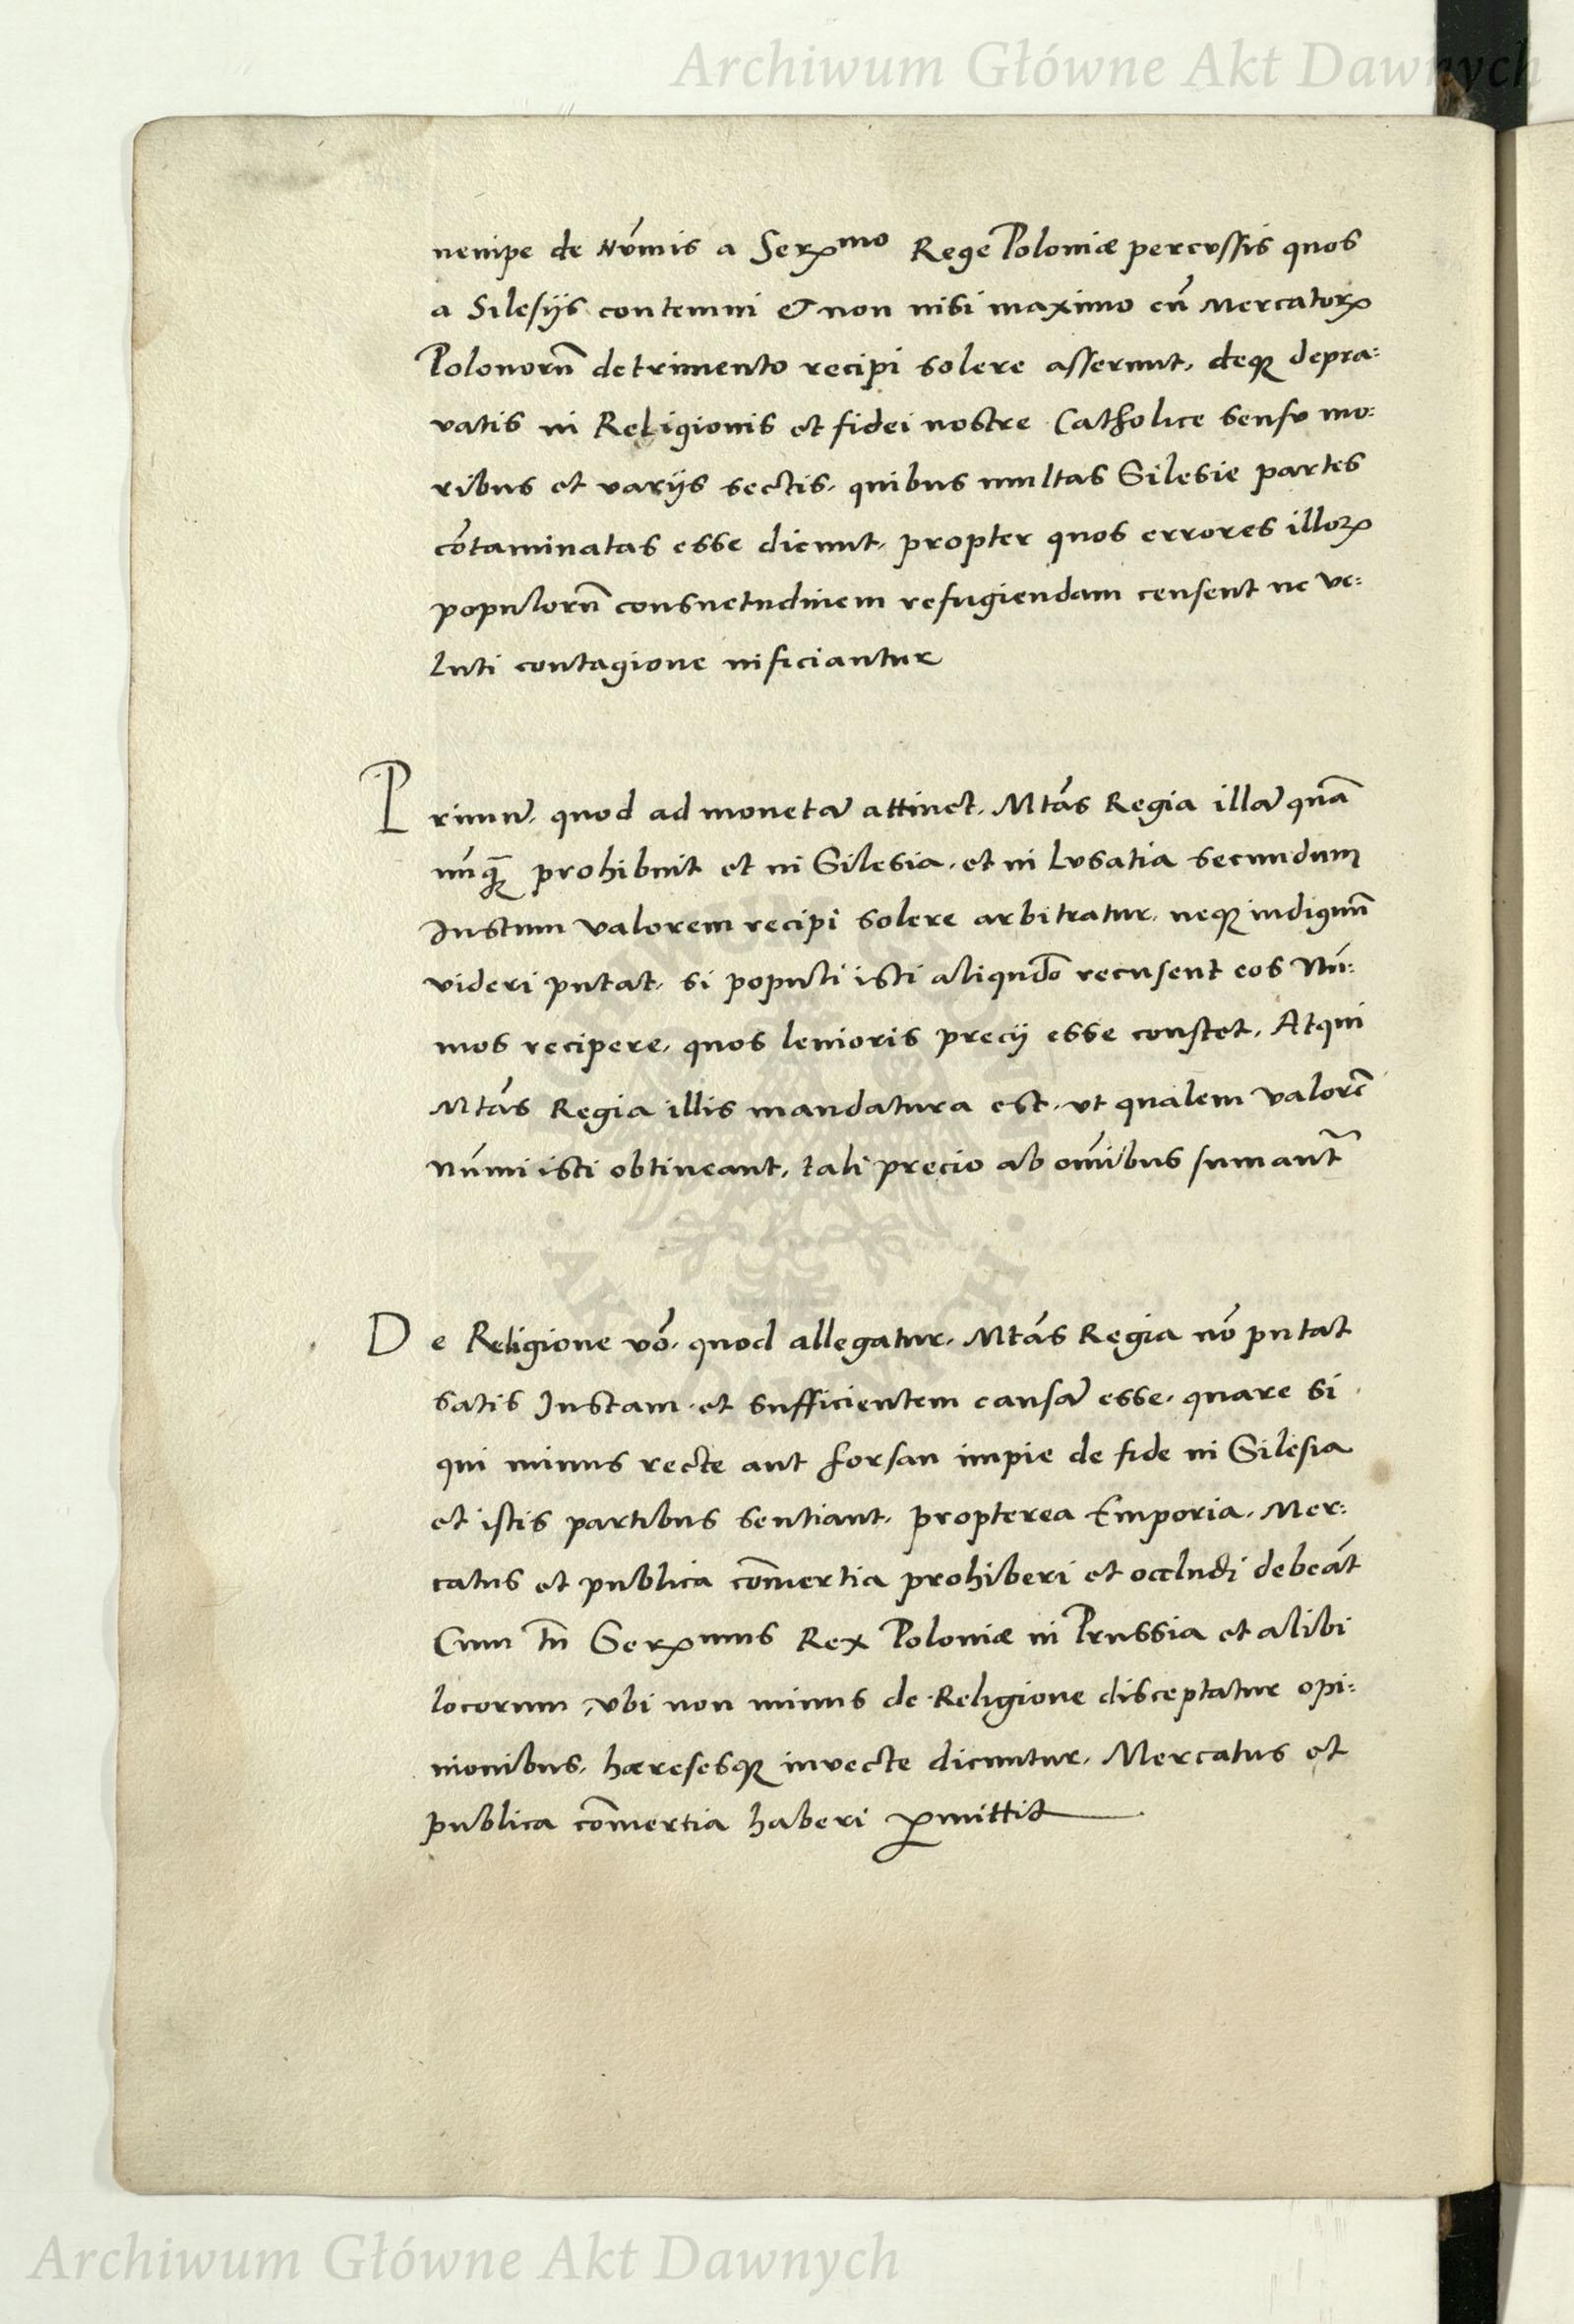 Archiwum Główne Akt Dawnych
nempe de Nũmis a Serꝝmo Rege Poloniæ percussis quos
a Silesijs contemni & non nisi maximo cũ Mercatorꝝ
Polonorũ detrimento recipi solere asserunt, deqꝫ depra:
vatis in Religionis et fidei nostre Catholice sensu mo:
ribus et varijs sectis, quibus multas Silesie partes
cõtaminatas esse dicunt, propter quos errores illorꝝ
populorũ consuetudinem refugiendam censent ne ve:
luti contagione inficiantur
Primũ, quod ad monetã attinet, Mtãs Regia illã quã
nũqꝫ̃ prohibuit et in Silesia, et in Lusatia secundum
Iustum valorem recipi solere arbitratur, neqꝫ indignũ
videri putat, si populi isti aliqñdo recusent eos Nũ:
mos recipere, quos leuioris precij esse constet, Atqui
Mtãs Regia illis mandatura est, ut qualem valorẽ
nũmi isti obtineant, tali precio ab oĩbus sumantr̃
De Religione võ, quod allegatur, Mtãs Regia nõ putat
satis Iustam et sufficientem causã esse, quare si
qui minus recte aut forsan impie de fide in Silesia
et istis partibus sentiant, propterea Emporia, Mer:
catus et publica cõmertia prohiberi et occludi debeãt
Cum tñ Serꝝmus Rex Poloniæ in Prussia et alibi
locorum, ubi non minus de Religione disceptatur opi:
nionibus, hæresesqꝫ invecte dicuntur, Mercatus et
publica cõmertia haberi ꝑmittit
Archiwum Główne Akt Dawnych